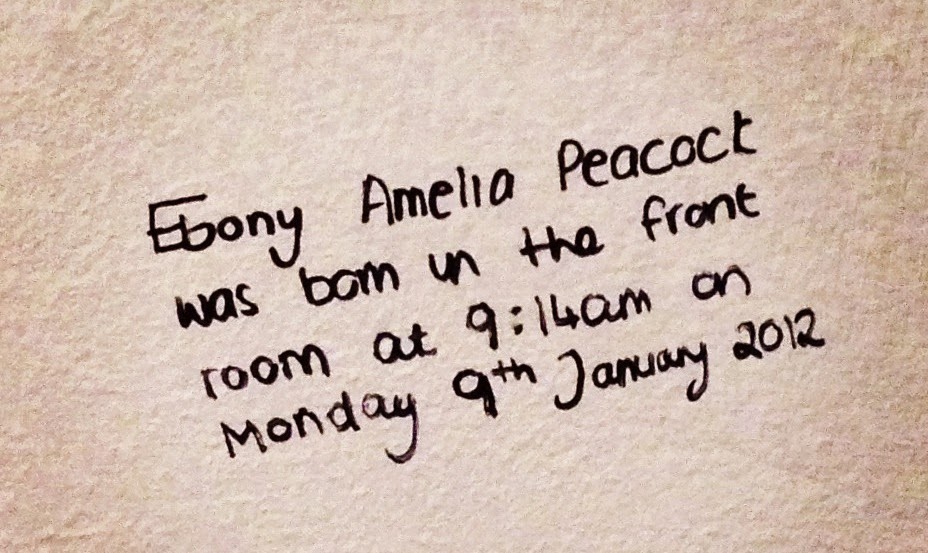 Ebony Amelia Peacock
was born in the front
room at 9:14am on
Monday 9th January 2012